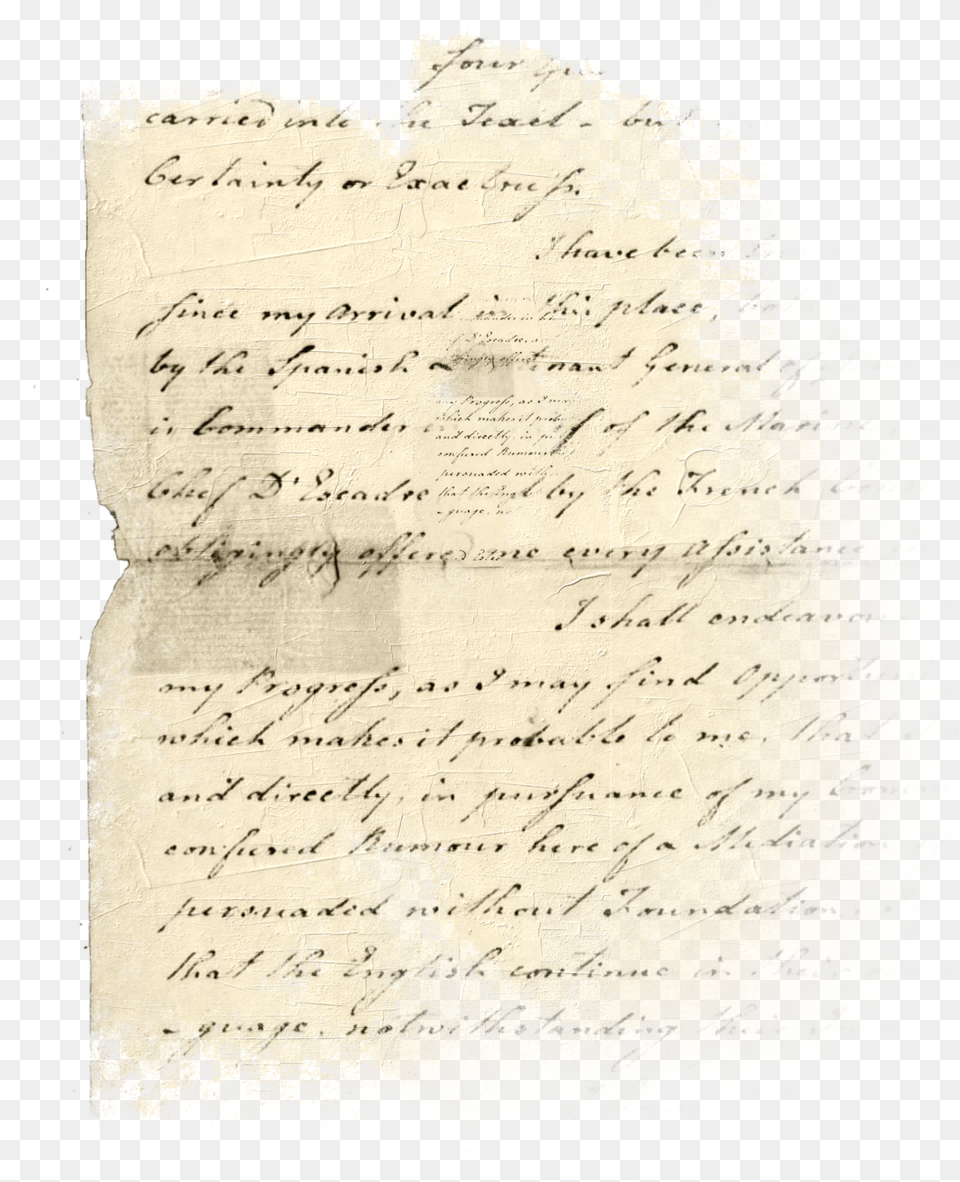 four
carried into the Texel - but
Certainty or Exactness.
I have been
since my Arrival in this place,
by the Spanish Lieutenant General of
is Commander of the Marine
Chef D'Escadre by the French
obligingly offered me every Assistance
I shall endeavou
my Progress, as I may find Opportu
which makes it probable to me, that
and directly, in pursuance of my Com
confused Rumour here of a Mediation
persuaded without Foundation
that the English continue in their
-guage, notwithstanding their
D'Escadre, a
my Progress, as I ma
which makes it proba
and directly, in pu
confused Rumou
persuaded with
that the Engl
-guage, no